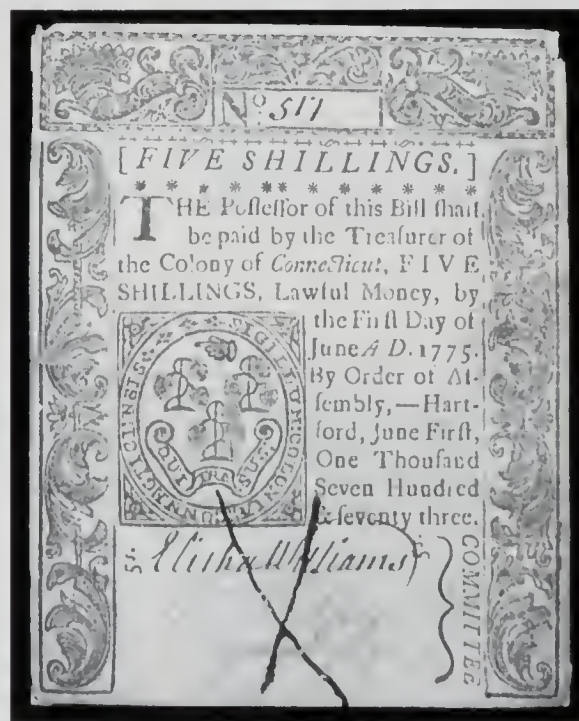 No 517
[FIVE SHILLINGS.]
THE Poſſeſſor of this Bill ſhall
be paid by the Treaſurer of
the Colony of Connecticut, FIVE
SHILLINGS, Lawful Money, by
the Firſt Day of
June A D. 1775.
By Order of Aſ-
ſembly,—Hart-
ford, June Firſt,
One Thouſand
Seven Hundred
& ſeventy three.
SIGILLUM COLONIÆ CONNECTICUTENSIS
QUI TRA SUS
5s. Elisha Williams 5s.
COMMITTEE